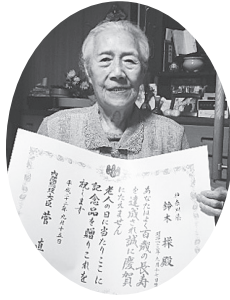 鈴木 操 殿
あなたはよく百歳の長寿
を達成され誠に慶賀
にたえません
老人の日に当たりここに
記念品を贈りこれを
祝します
平成二十二年九月十五日
内閣総理大臣 菅 直